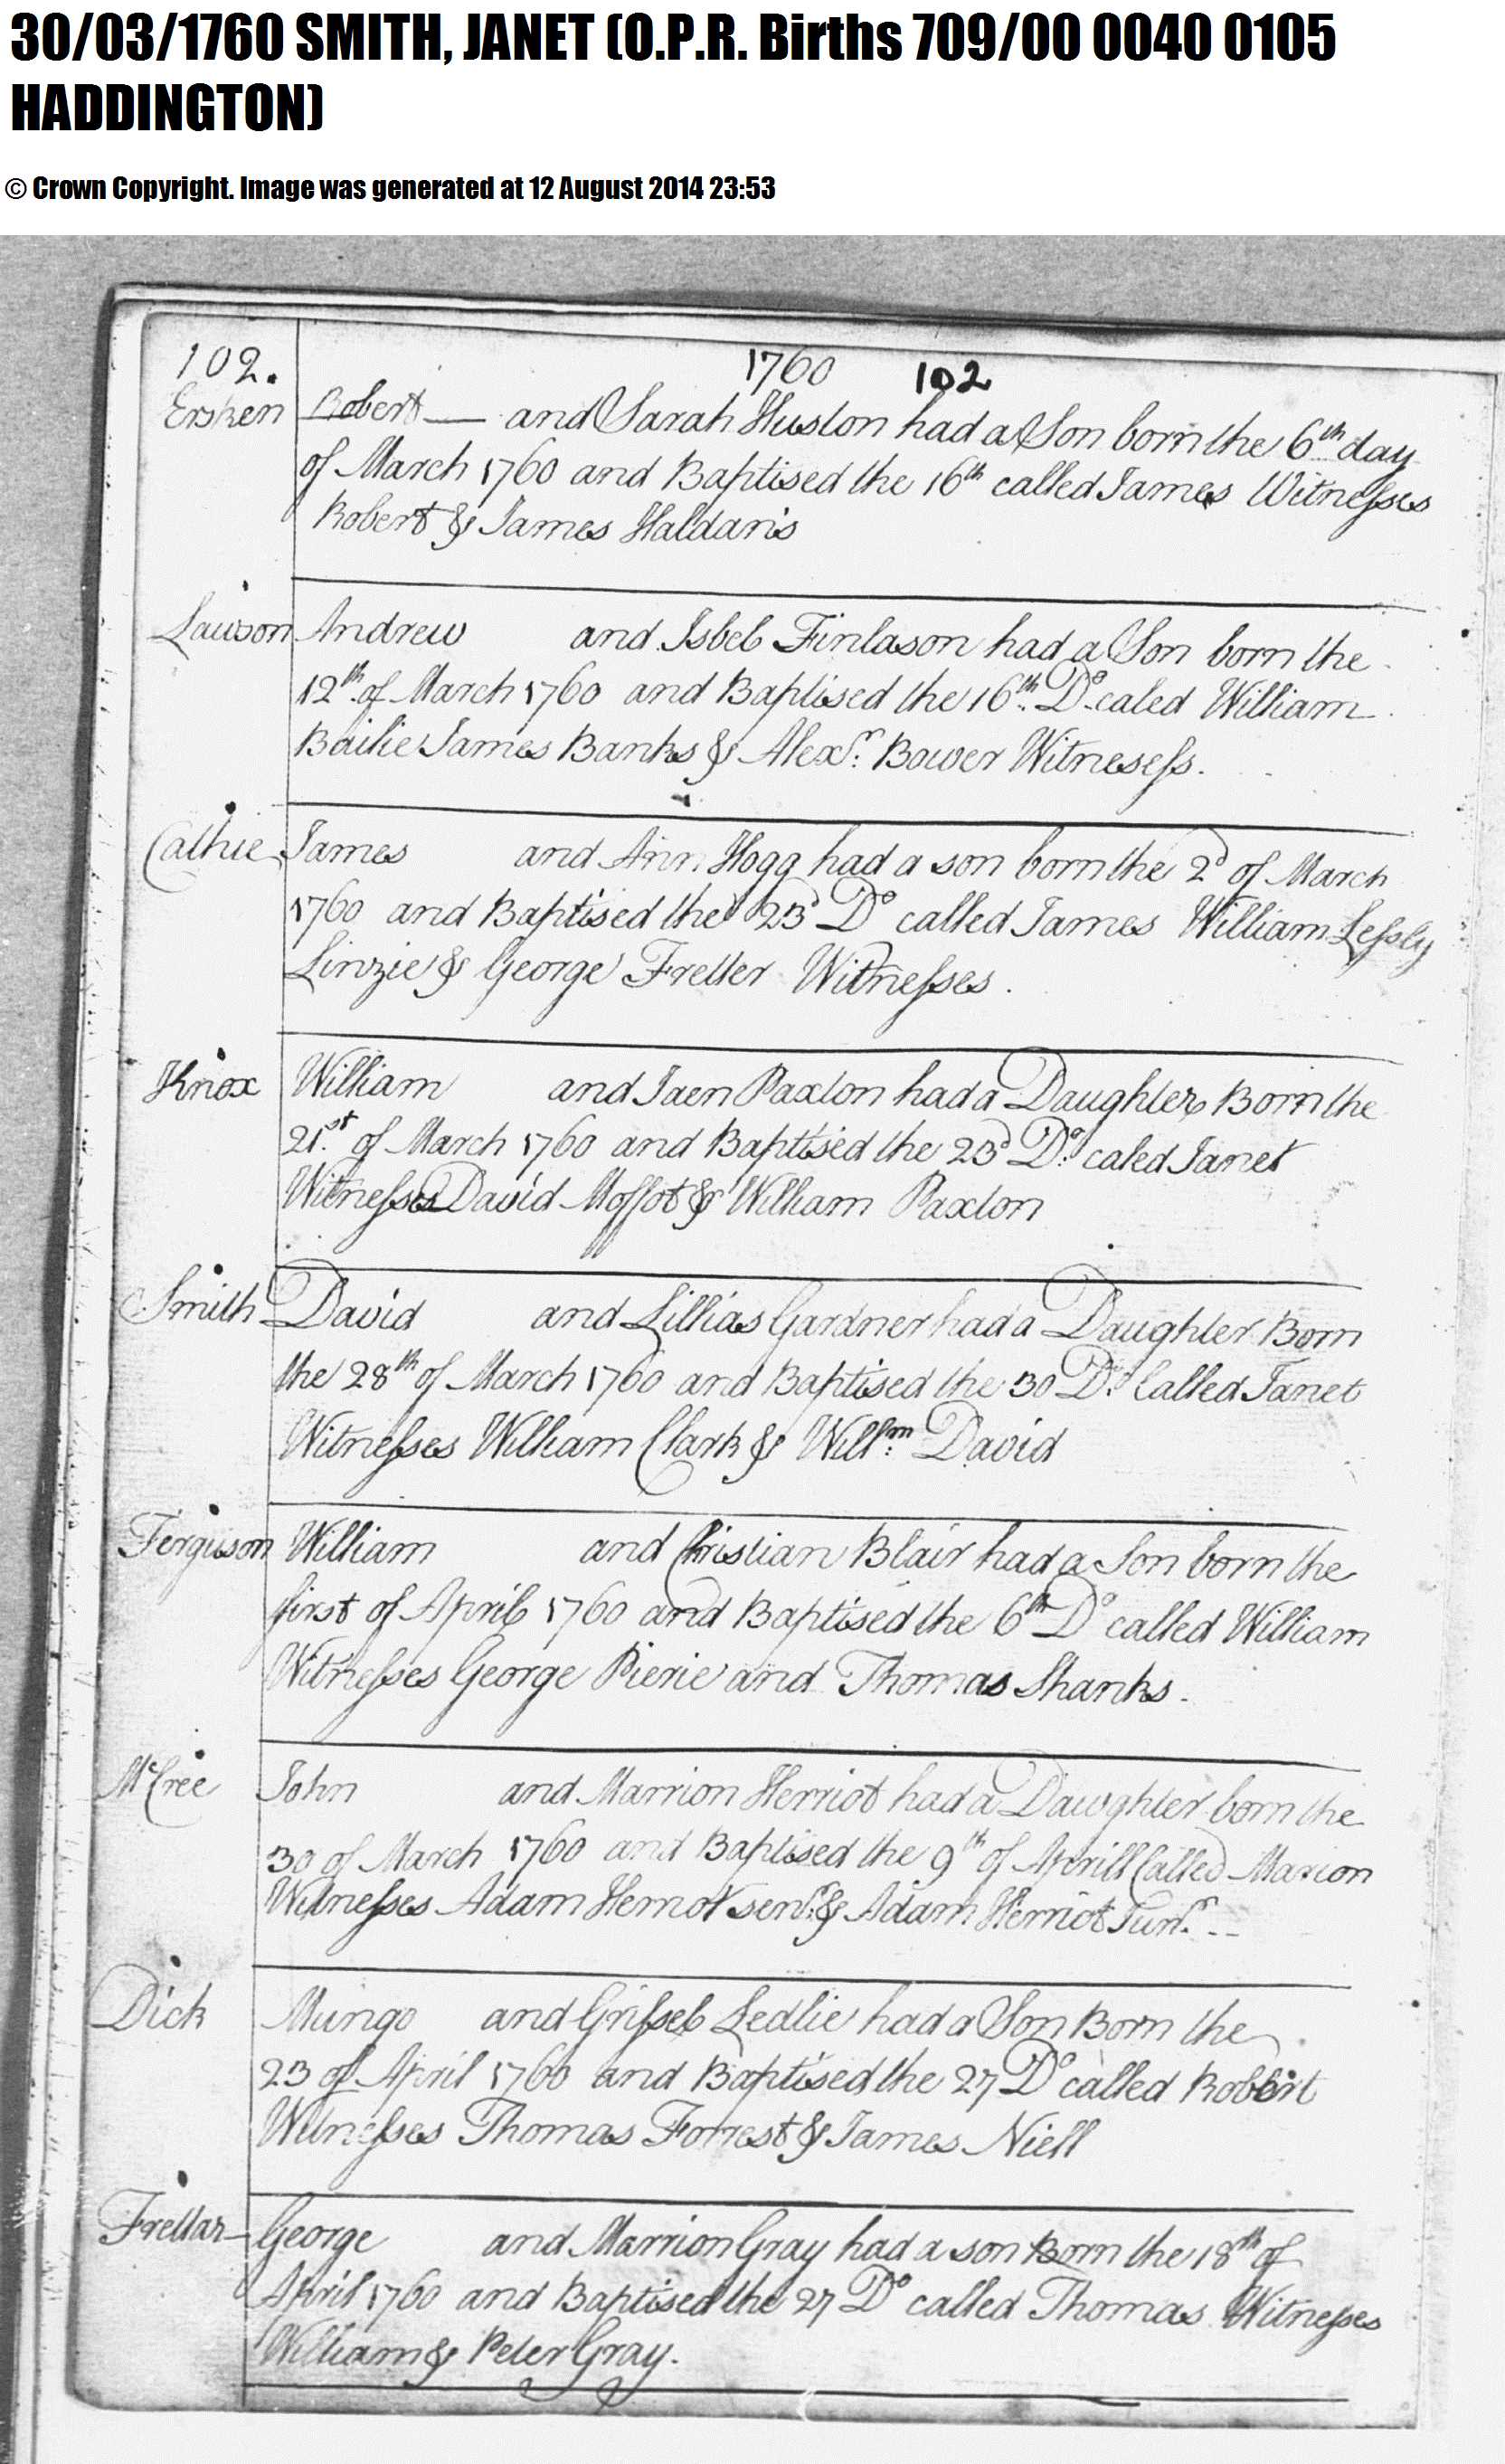 30/03/1760 SMITH, JANET (O.P.R. Births 709/00 0040 0105
HADDINGTON)
© Crown Copyright. Image was generated at 12 August 2014 23:53
102. 1760 102
Ersken Robert — and Sarah Huston had a Son born the 6th day
of March 1760 and Baptised the 16th called James Witnesses
Robert & James Haldan's
Lawson Andrew and Isbel Finlason had a Son born the
12th of March 1760 and Baptised the 16th Do caled William
Bailie James Banks & Alexr. Bower Witnesess.
Cathie James and Ann Hogg had a son born the 2d of March
1760 and Baptised the 23d Do called James William Lessly
Linzie & George Fretter Witnesses.
Knox William and Jaen Paxton had a Daughter Born the
21st of March 1760 and Baptised the 23d Do caled Janet
Witnesses David Moffot & William Paxton
Smith David and Lillias Gardner had a Daughter Born
the 28th of March 1760 and Baptised the 30 Do Called Janet
Witnesses William Clark & Willm David
Ferguson William and Christian Blair had a Son born the
first of April 1760 and Baptised the 6th Do called William
Witnesses George Pierie and Thomas Shanks.
McCree John and Marrion Herriot had a Daughter born the
30 of March 1760 and Baptised the 9th of Aprill Called Marion
Witnesses Adam Herriot senr. & Adam Herriot Junr.
Dick Mungo and Grissel Ledlie had a Son Born the
23 of April 1760 and Baptised the 27 Do called Robert
Witnesses Thomas Forrest & James Niell
Frettar George and Marrion Gray had a son Born the 18th of
April 1760 and Baptised the 27 Do called Thomas Witnesses
William & Peter Gray.